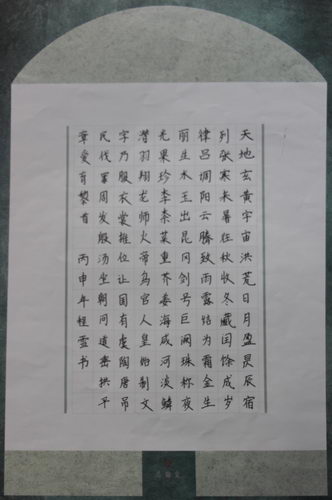 天地玄黄宇宙洪荒日月盈昃辰宿
列张寒来暑往秋收冬藏闰馀成岁
律吕调阳云腾致雨露结为霜金生
丽生水玉出昆冈剑号巨阙珠称夜
光果珍李柰菜重芥姜海咸河淡鳞
潜羽翔龙师火帝鸟官人皇始制文
字乃服衣裳推位让国有虞陶唐吊
民伐罪周发殷汤坐朝问道垂拱平
章爱育黎首 丙申年 雪书